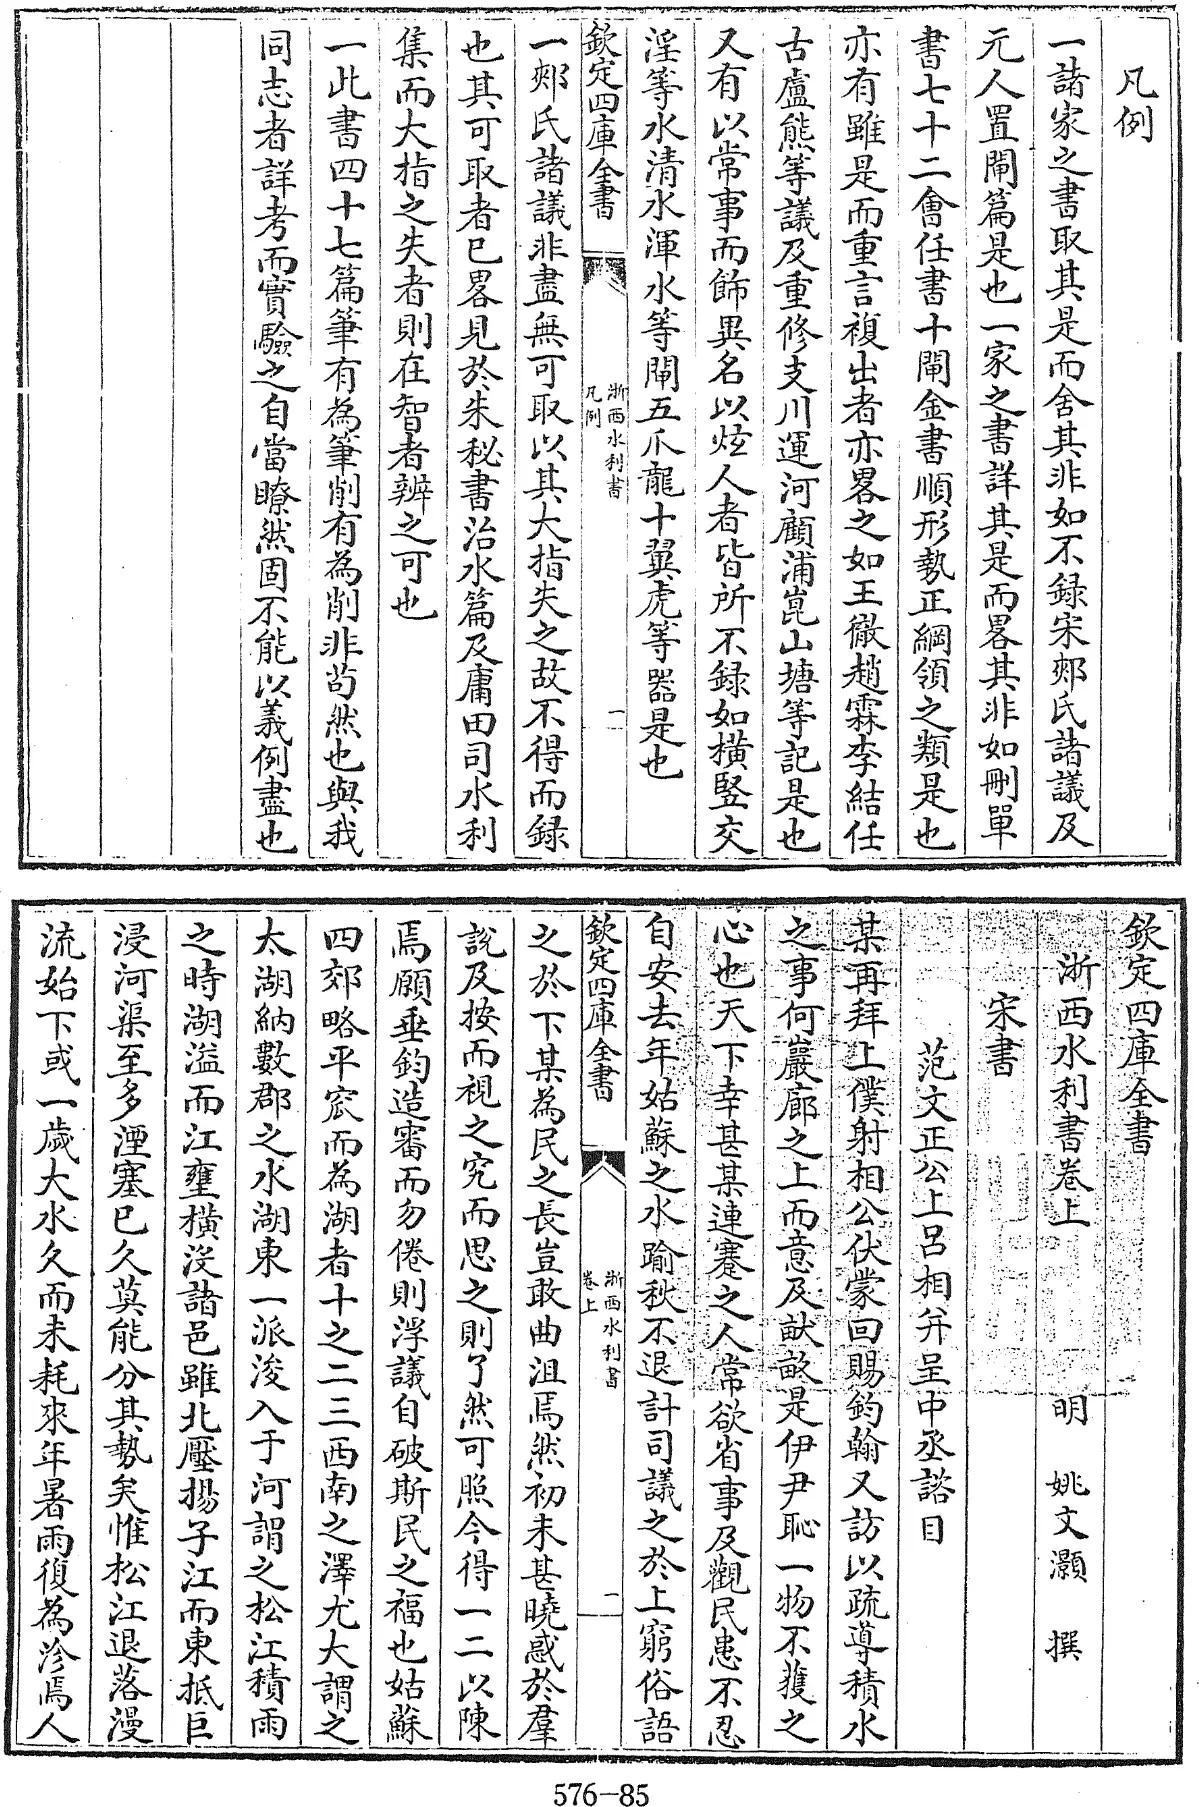 凡例
一諸家之書取其是而舍其非如不録宋郟氏諸議及
元人置閘篇是也一家之書詳其是而畧其非如刪單
書七十二會任書十閘金書順形勢正綱領之類是也
亦有雖是而重言複出者亦畧之如王徹趙霖李結任
古盧熊等議及重修支川運河顧浦崑山塘等記是也
又有以常事而飾異名以炫人者皆所不録如横竪交
淫等水清水渾水等閘五爪龍十翼虎等器是也
欽定四庫全書
浙西水利書
凡例
一
一郟氏諸議非盡無可取以其大指失之故不得而録
也其可取者已畧見於朱秘書治水篇及庸田司水利
集而大指之失者則在智者辨之可也
一此書四十七篇筆有為筆削有為削非苟然也與我
同志者詳考而實驗之自當瞭然固不能以義例盡也
欽定四庫全書
浙西水利書卷上
明 姚文灝 撰
宋書
范文正公上呂相并呈中丞諮目
某再拜上僕射相公伏蒙回賜鈞翰又訪以疏導積水
之事何巖廊之上而意及畎畝是伊尹恥一物不獲之
心也天下幸甚某連蹇之人常欲省事及觀民患不忍
自安去年姑蘇之水踰秋不退計司議之於上窮俗語
欽定四庫全書
浙西水利書
卷上
一
之於下某為民之長豈敢曲沮焉然初未甚曉惑於羣
說及按而視之究而思之則了然可照今得一二以陳
焉願垂鈞造審而勿倦則浮議自破斯民之福也姑蘇
四郊略平窊而為湖者十之二三西南之澤尤大謂之
太湖納數郡之水湖東一派浚入于河謂之松江積雨
之時湖溢而江壅横沒諸邑雖北壓揚子江而東抵巨
浸河渠至多湮塞已久莫能分其勢矣惟松江退落漫
流始下或一歲大水久而未耗來年暑雨復為沴焉人
576-85